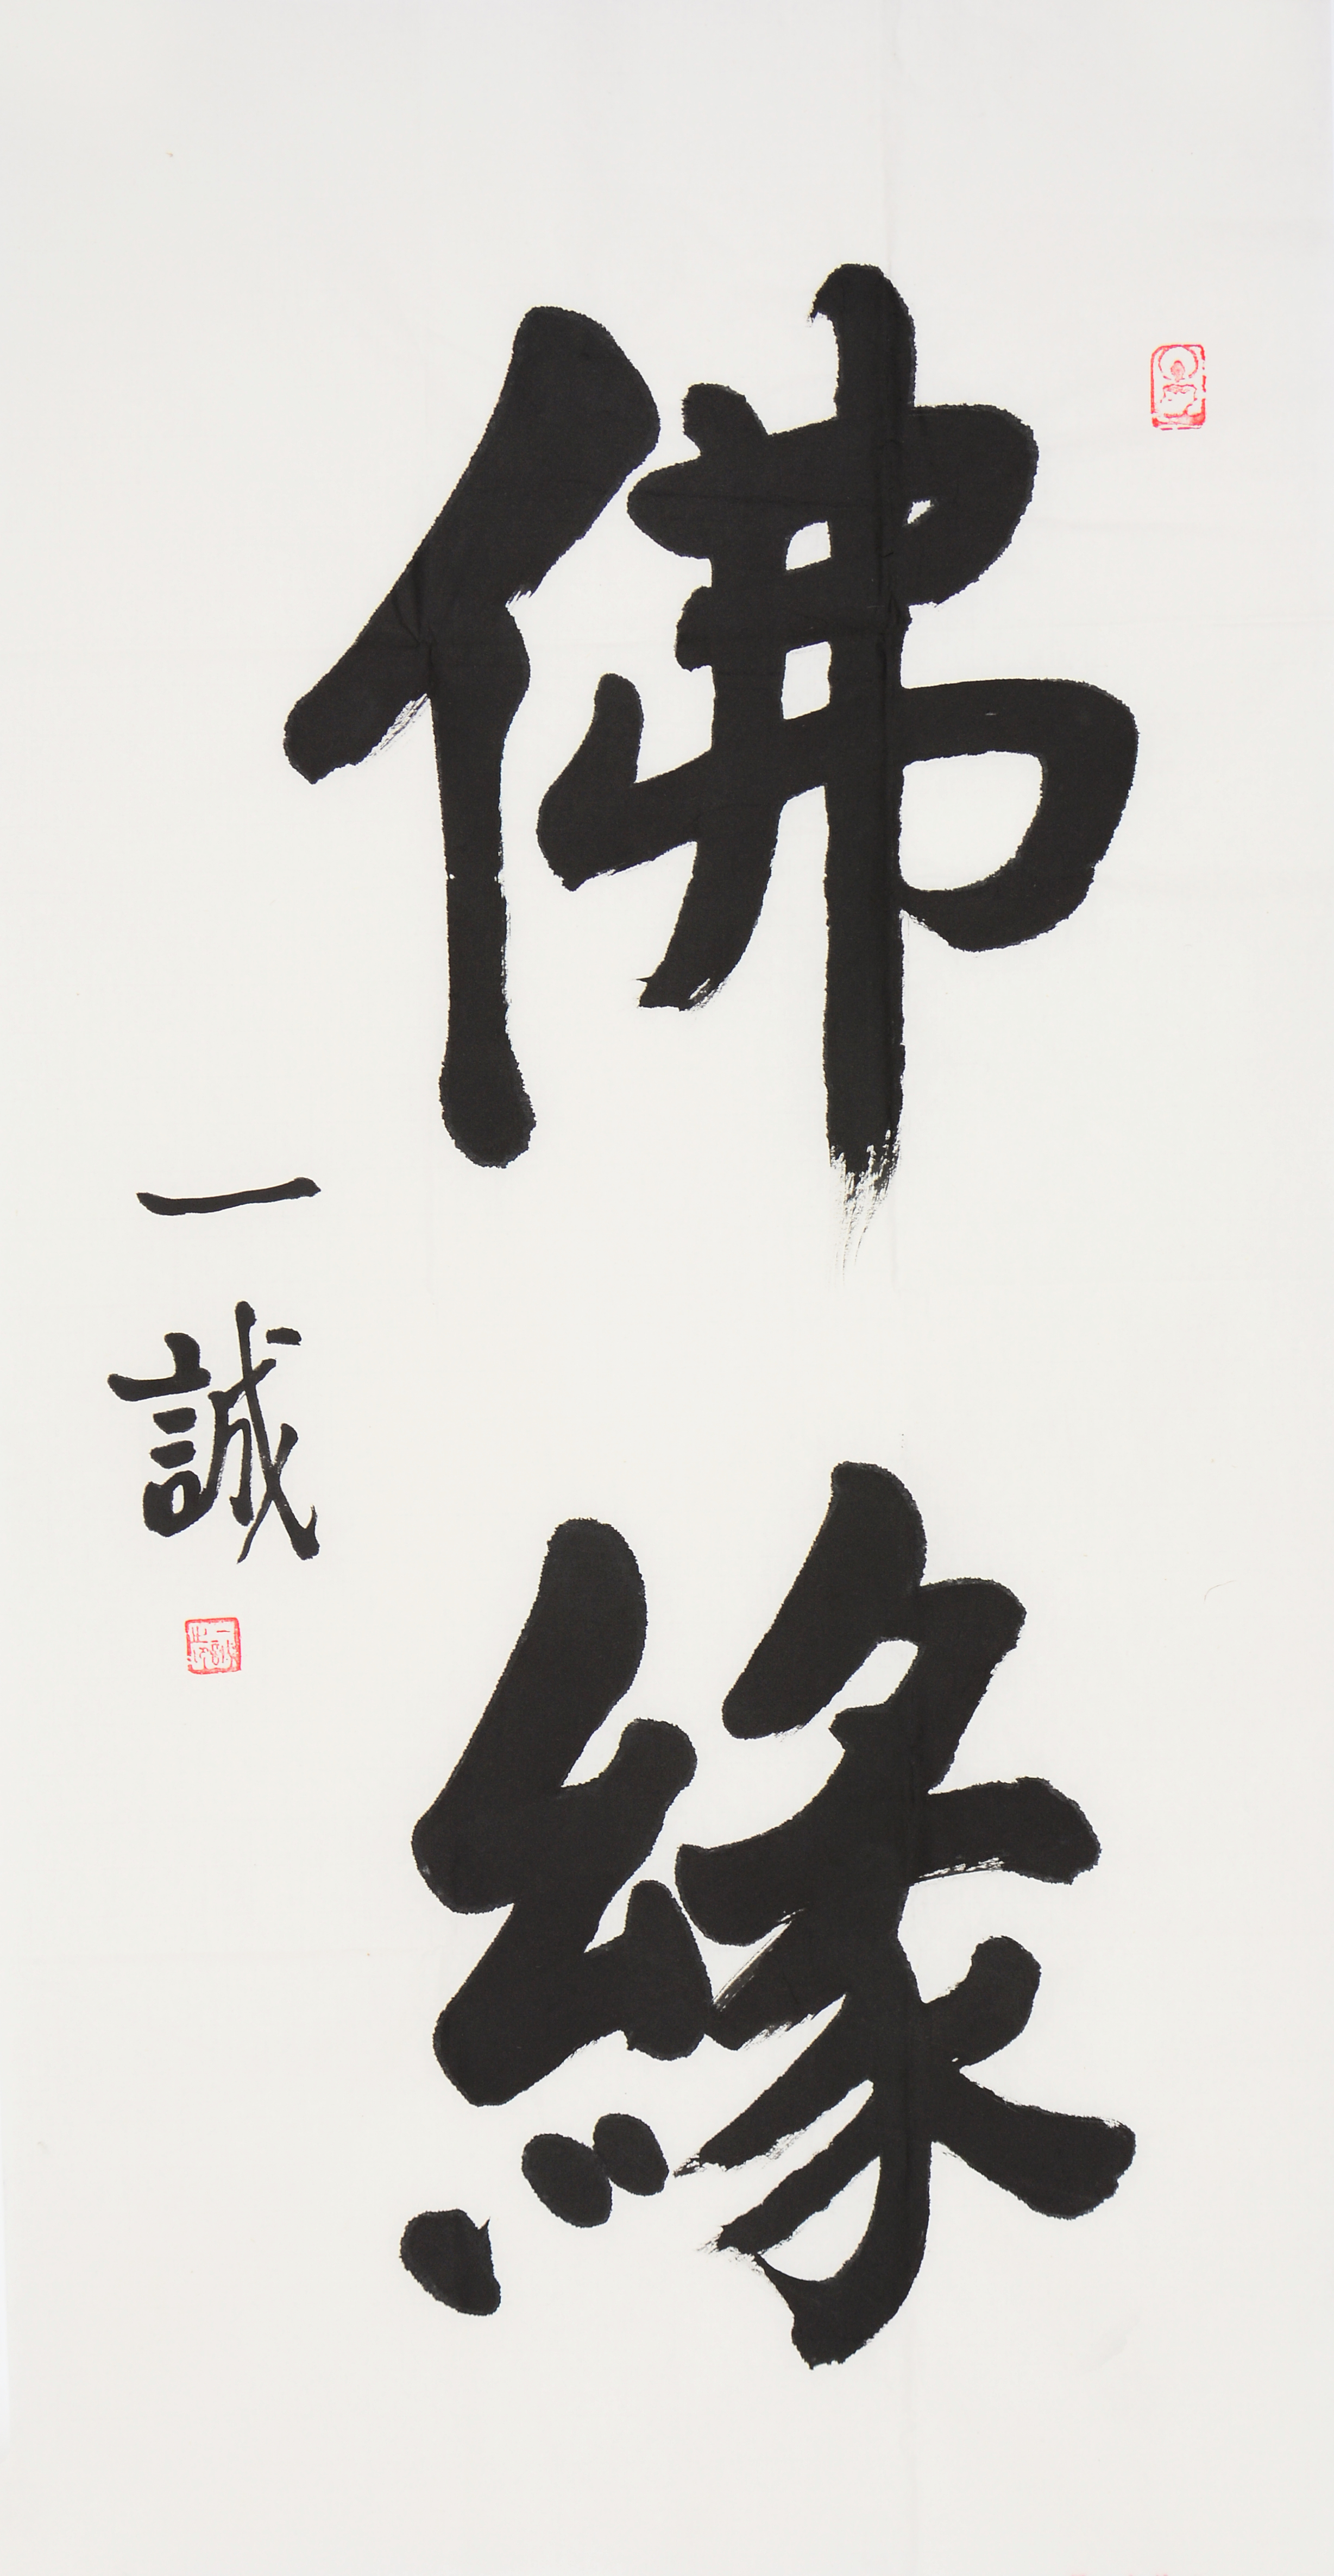 佛緣
一誠